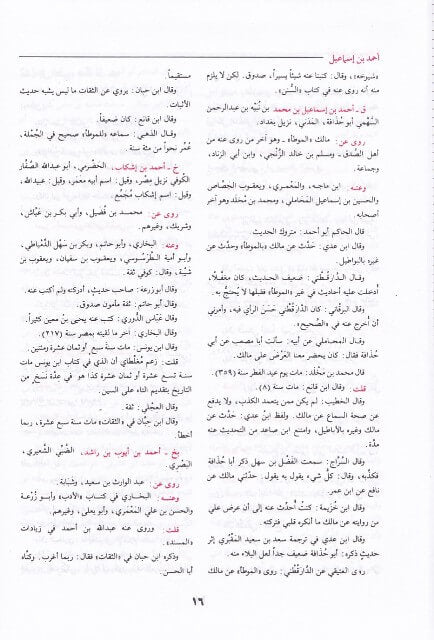 أحمد بن إسماعيل
«شيوخه»، وقال: كتبنا عنه شيئاً يسيراً، صدوق. لكن لا يلزم
منه أنه روى عنه في كتاب «السنن».
ق ـ أحمد بن إسماعيل بن محمد بن نُبَيْه بن عبدالرحمن
السَّهْمي أبو حُذافة، المَدَني، نزيل بغداد.
روى عن: مالك «الموطأ» ـ وهو آخر من روى عنه من
أهل الصِّدق ـ ومسلم بن خالد الزَّنْجي، وابن أبي الزناد،
وجماعة.
وعنه: ابن ماجه، والمَعْمري، ويعقوب الجَصَّاص
والحسين بن إسماعيل المَحَاملي، ومحمد بن مَخْلد وهو آخر
أصحابه.
قال الحاكم أبو أحمد: متروك الحديث.
وقال ابن عدي: حَدَّث عن مالك «بالموطأ» وحدَّث عن
غيره بالبواطيل.
وقـال الـدارقُطْني: ضعيف الحـديث، كان مغفلًا،
أُدخلت عليه أحاديث في غير «الموطأ» فقبلها لا يُحتجُّ به.
وقال البرقاني: كان الدَّارقُطْني حَسَن الرأي فيه، وأمرني
أن أُخرج عنه في «الصَّحيح».
وقـال المحـاملي عن أبيه: سألت أبا مصعب عن أبي
حُذافة فقال: كان يحضر معنا العَرْضَ على مالك.
قال محمد بن مَخْلد: مات يوم عيد الفطر سنة (٢٥٩)
قلت: وقال ابن قانع: مات سنة (٨).
وقال الخطيب: لم يكن ممن يتعمد الكذب، ولا يدفع
عن صحة السماع عن مالك. ولفظ ابن عدي: حدَّث عن
مالك وغيره بالأباطيل، وامتنع ابن صاعد من التحديث عنه
مدّة.
وقال السَّرَّاج: سمعت الفَضْل بن سهل ذكر أبا حُذافة
فكذَّبه، وقال: كل شيء يقول به يقول. حدَّثني مالك عن
نافع عن ابن عمر.
وقال ابن خُزيمة: كنتُ أُحدّث عنه إلى أن عرض علي
من روايته عن مالك ما أنكره قلبي فتركته.
وقال ابن عدي في ترجمة سعد بن سعيد المَقْبُري إثر
حديثٍ ذكره: أبو حُذافة ضعيف جداً لعل البلاء منه.
روى العتيقي عن الدَّارقُطْني: روى «الموطأ» عن مالك
مستقيماً.
وقال ابن حبان: يروي عن الثقات ما ليس يشبه حديث
الأثبات.
وقال ابن قانع: كان ضعيفاً.
وقال الذهبي: سماعه «للموطأ» صحيح في الجُمْلة،
عُمِّر نحواً من مئة سنة.
خ ـ أحمد بن إشكاب، الحَضْرمي، أبو عبدالله الصَّفَّار
الكُوفي نزيل مِصْر، وقيل: اسم أبيه مَعْمر، وقيل: عبيدالله،
وقيل: اسم إشكاب مُجَمِّع.
روى عن: محمد بن فُضيل، وأبي بكر بن عيَّاش،
وشَريك، وغيرهم.
وعنه: البخاري، وأبو حاتم، وبكر بن سَهْل الدِّمياطي،
وأبو أمية الطَّرَسُوسي، ويعقوب بن سفيان، ويعقوب بن
شَيْبة، وقال: كوفي ثقة.
وقال أبو زرعة: صاحب حديث، أدركته ولم أكتب عنه.
وقال أبو حاتم: ثقة مأمون صدوق.
وقال عَبَّاس الدُّوري: كتب عنه يحيى بن معين كثيراً.
وقال البخاري: آخر ما لقيته بمصر سنة (٢١٧)
وقال ابن يونس: مات سنة سبع أو ثمان عشرة ومئتين.
قلت: زعم مُغْلطاي أن الذي في كتاب ابن يونس مات
سنة تسع عشرة أو ثمان عشرة كذا هو في عدّة نُسَخ من
التاريخ بتقديم التاء على السين.
وقال العجلي: ثقة.
وقال ابن حِبَّان في «الثقات» مات سنة سبع عشرة، ربما
أخطأ.
بخ ـ أحمد بن أيوب بن راشد، الضَّبِّي الشَّعيري،
البَصْري.
روى عن: عبد الوارث بن سعيد، وشَبَابة.
وعنه: البخاري في كتاب «الأدب» وأبو زُرْعة
والحسن بن علي المَعْمَري، وأبو يعلى، وغيرهم.
قلت: وروى عنه عبدالله بن أحمد في زيادات
«المسند».
وذكره ابن حبان في «الثقات» فقال: ربما أغرب. وكناه
أبا الحسن.
١٦